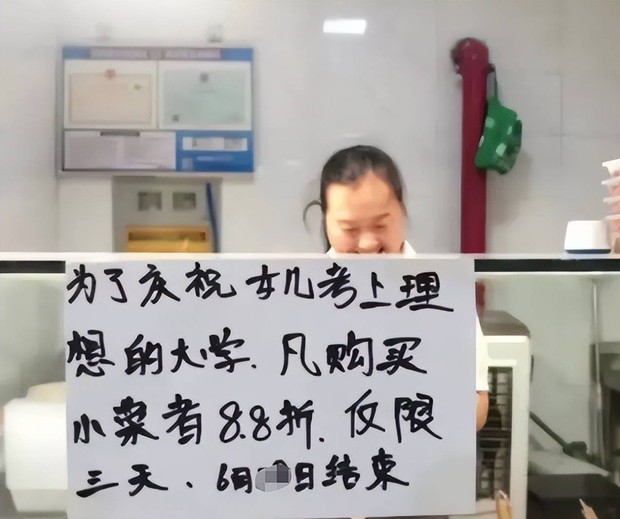 为了庆祝女儿考上理
想的大学.凡购买
小菜者8.8折.仅限
三天、6月日结束